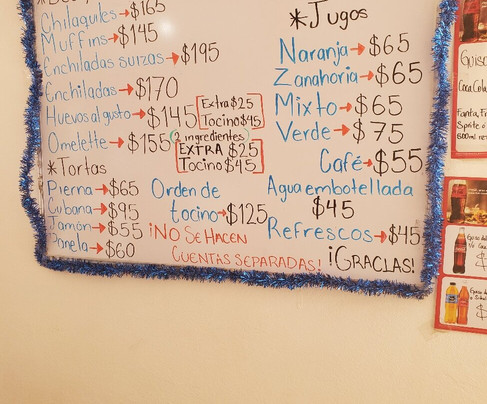 Chilaquiles→$165
Muffins→$145
Enchiladas suizas→$195
Enchiladas→$170
Huevos al gusto→$145
Extra $25
Tocino $45
Omelette→$155 (2 ingredientes)
EXTRA $25
Tocino $45
*Tortas
Pierna→$65
Cubana→$95
Jamón→$55
$60
Orden de
tocino→$125
¡NO SE HACEN
CUENTAS SEPARADAS!
*Jugos
Naranja→$65
Zanahoria→$65
Mixto→$65
Verde→$75
Café→$55
Agua embotellada
$45
Refrescos→$45
¡GRACIAS!
Coca Cola